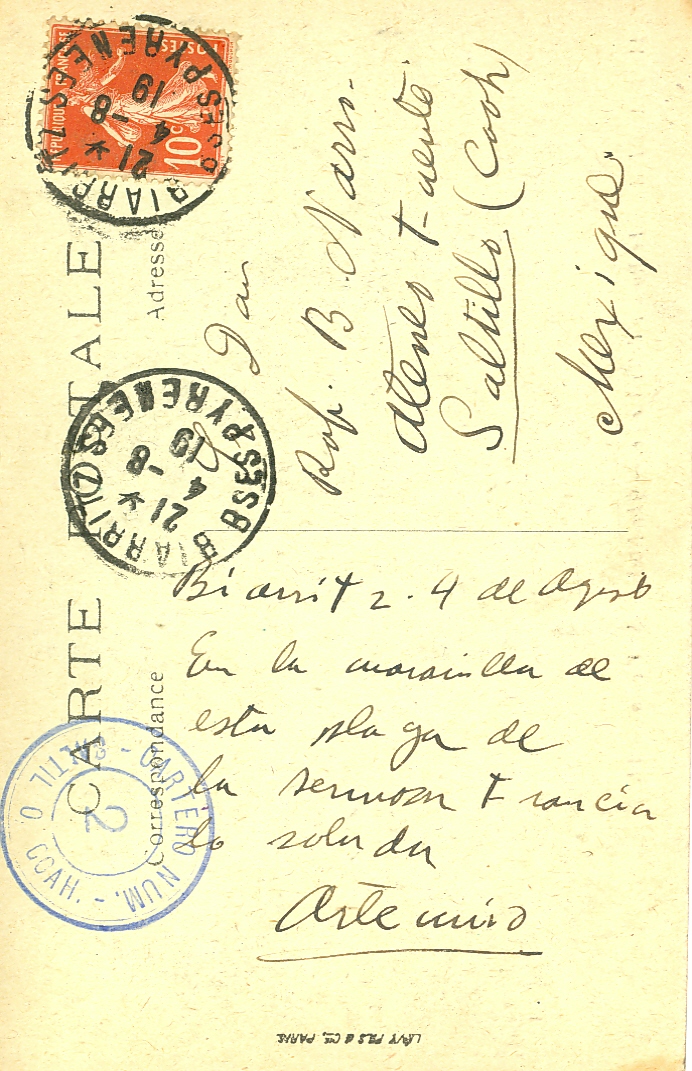 CARTE POSTALE
Correspondance
Adresse
REPUBLIQUE FRANÇAISE
POSTES
10c
BIARRITZ
BSES PYRENEES
21 *
4 - 8
19
BIARRITZ
BSES PYRENEES
21 *
4 - 8
19
Prof. B. Narro
Ateneo Fuente
Saltillo (Coah)
Mexique
Biarritz. 4 de Agosto
En la maravilla de
esta playa de
la hermosa Francia
lo saluda
Artemio
CARTERO NUM.
2
SALTILLO COAH.
LÉVY FILS & Cie, PARIS